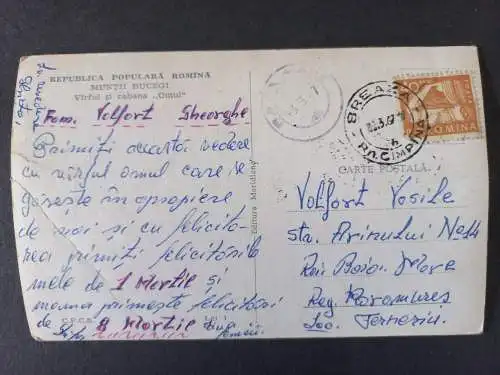 REPUBLICA POPULARĂ ROMÎNĂ
MUNȚII BUCEGI
Vîrful și cabana „Omul"
Fam. Volfort Gheorghe
Primiți această vedere
cu vîrful omul care se
găsește în apropiere
de noi și cu felicita-
rea primiți felicitările
mele de 1 Martie și
mama primește felicitări
de 8 Martie
Editura Meridiane
BREAZA
R. CÎMPINA
ROMINA
CARTE POSTALĂ
Volfort Vasile
str. Arinului No 14
Roi. Baia Mare
Reg. Maramureș
Loc. Ferneziu